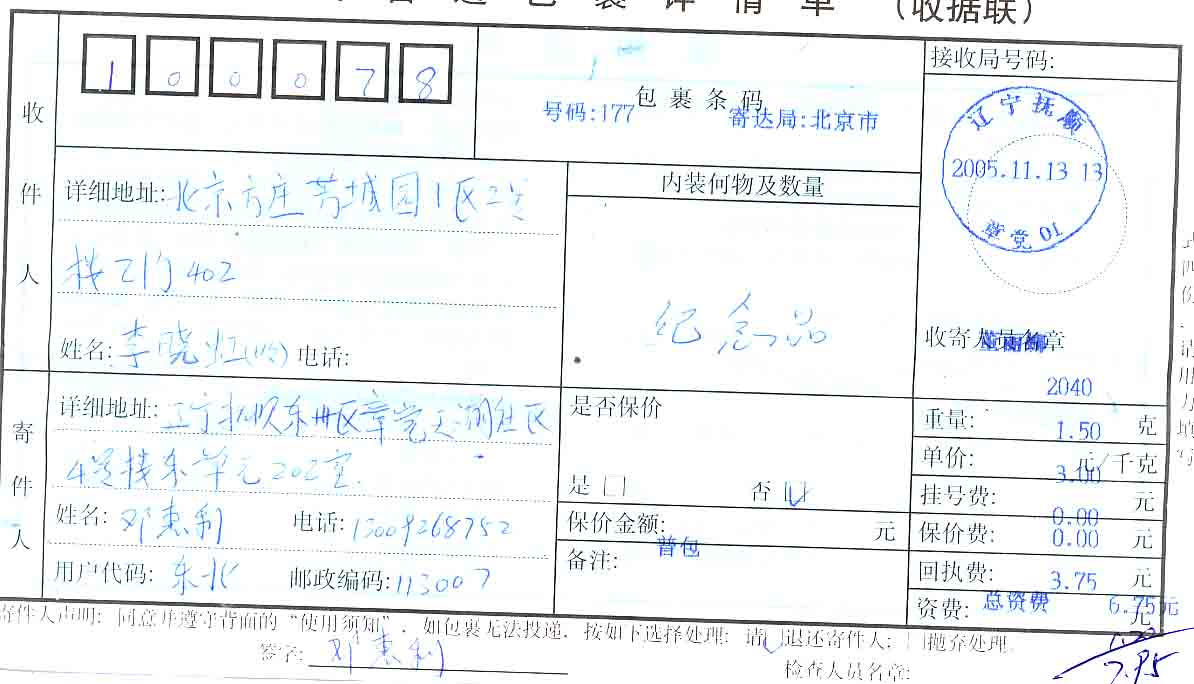 包裹详情单 (收据联)
收件人
100078
包裹条码
号码:177 寄达局:北京市
接收局号码:
辽宁抚顺
2005.11.13 13
章党 01
详细地址:北京方庄芳城园1区2号
楼2门402
姓名:李晓 电话:
内装何物及数量
纪念品
收寄人员名章
2040
寄件人
详细地址:辽宁抚顺东洲区章党天湖社区
4号楼东单元202室
姓名:邓惠利 电话:13009268752
用户代码:东北 邮政编码:113007
是否保价
是 否
保价金额: 元
备注: 普包
重量: 1.50 克
单价: 3.00 元/千克
挂号费: 0.00 元
保价费: 0.00 元
回执费: 3.75 元
资费: 总资费 6.75元 元
寄件人声明: 同意并遵守背面的“使用须知”. 如包裹无法投递. 按如下选择处理: 请 退还寄件人; 抛弃处理.
签字: 邓惠利
检查人员名章:
7.95